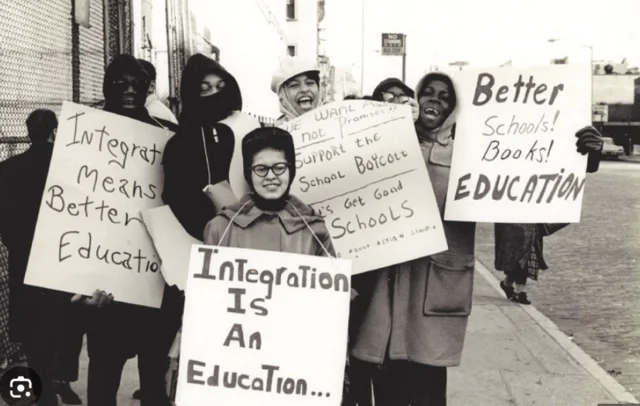 Integrat
means
Better
Educatio
WE WANT
not Promises!!
Support the
School Boycott
t's Get Good
Schools
Integration
Is
An
Education...
Better
Schools!
Books!
EDUCATION
NO